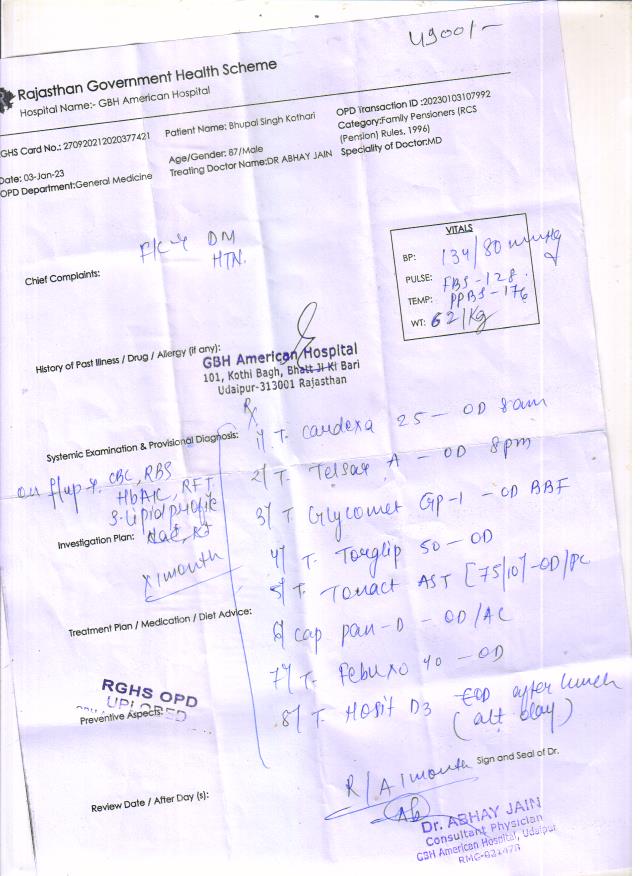 4900/-
Rajasthan Government Health Scheme
Hospital Name:- GBH American Hospital
GHS Card No.: 270920212020377421
Patient Name: Bhupal Singh Kothari
OPD Transaction ID :20230103107992
Category:Family Pensioners (RCS
(Pension) Rules, 1996)
Age/Gender: 87/Male
Date: 03-Jan-23
Treating Doctor Name:DR ABHAY JAIN
Speciality of Doctor:MD
OPD Department:General Medicine
DM
HTN.
Chief Complaints:
VITALS
BP: 134/80 mmHg
PULSE: FBS-128.
TEMP: PPBS-176
WT: 62/Kg
History of Past Illness / Drug / Allergy (if any):
GBH American Hospital
101, Kothi Bagh, Bhatt Ji Ki Bari
Udaipur-313001 Rajasthan
Rx
Systemic Examination & Provisional Diagnosis:
1/ T. Cardexa 25 - OD 8am
CBC, RBS
HbA1C, RFT
S. Lipid profile
2/ T. Telsar A - OD 8pm
3/ T. Glycomet GP-1 - OD BBF
Investigation Plan:
x 1 month
4/ T. Torglip 50 - OD
5/ T. Tonact AST [75/10] - OD/PC
Treatment Plan / Medication / Diet Advice:
6/ cap pan-D - OD/AC
7/ T. Febuxo 40 - OD
8/ T. Hosit D3 EOD after lunch
(alt day)
RGHS OPD
UPLOADED
Preventive Aspects:
R/A 1 month
Sign and Seal of Dr.
Review Date / After Day (s):
Dr. ABHAY JAIN
Consultant Physician
GBH American Hospital, Udaipur